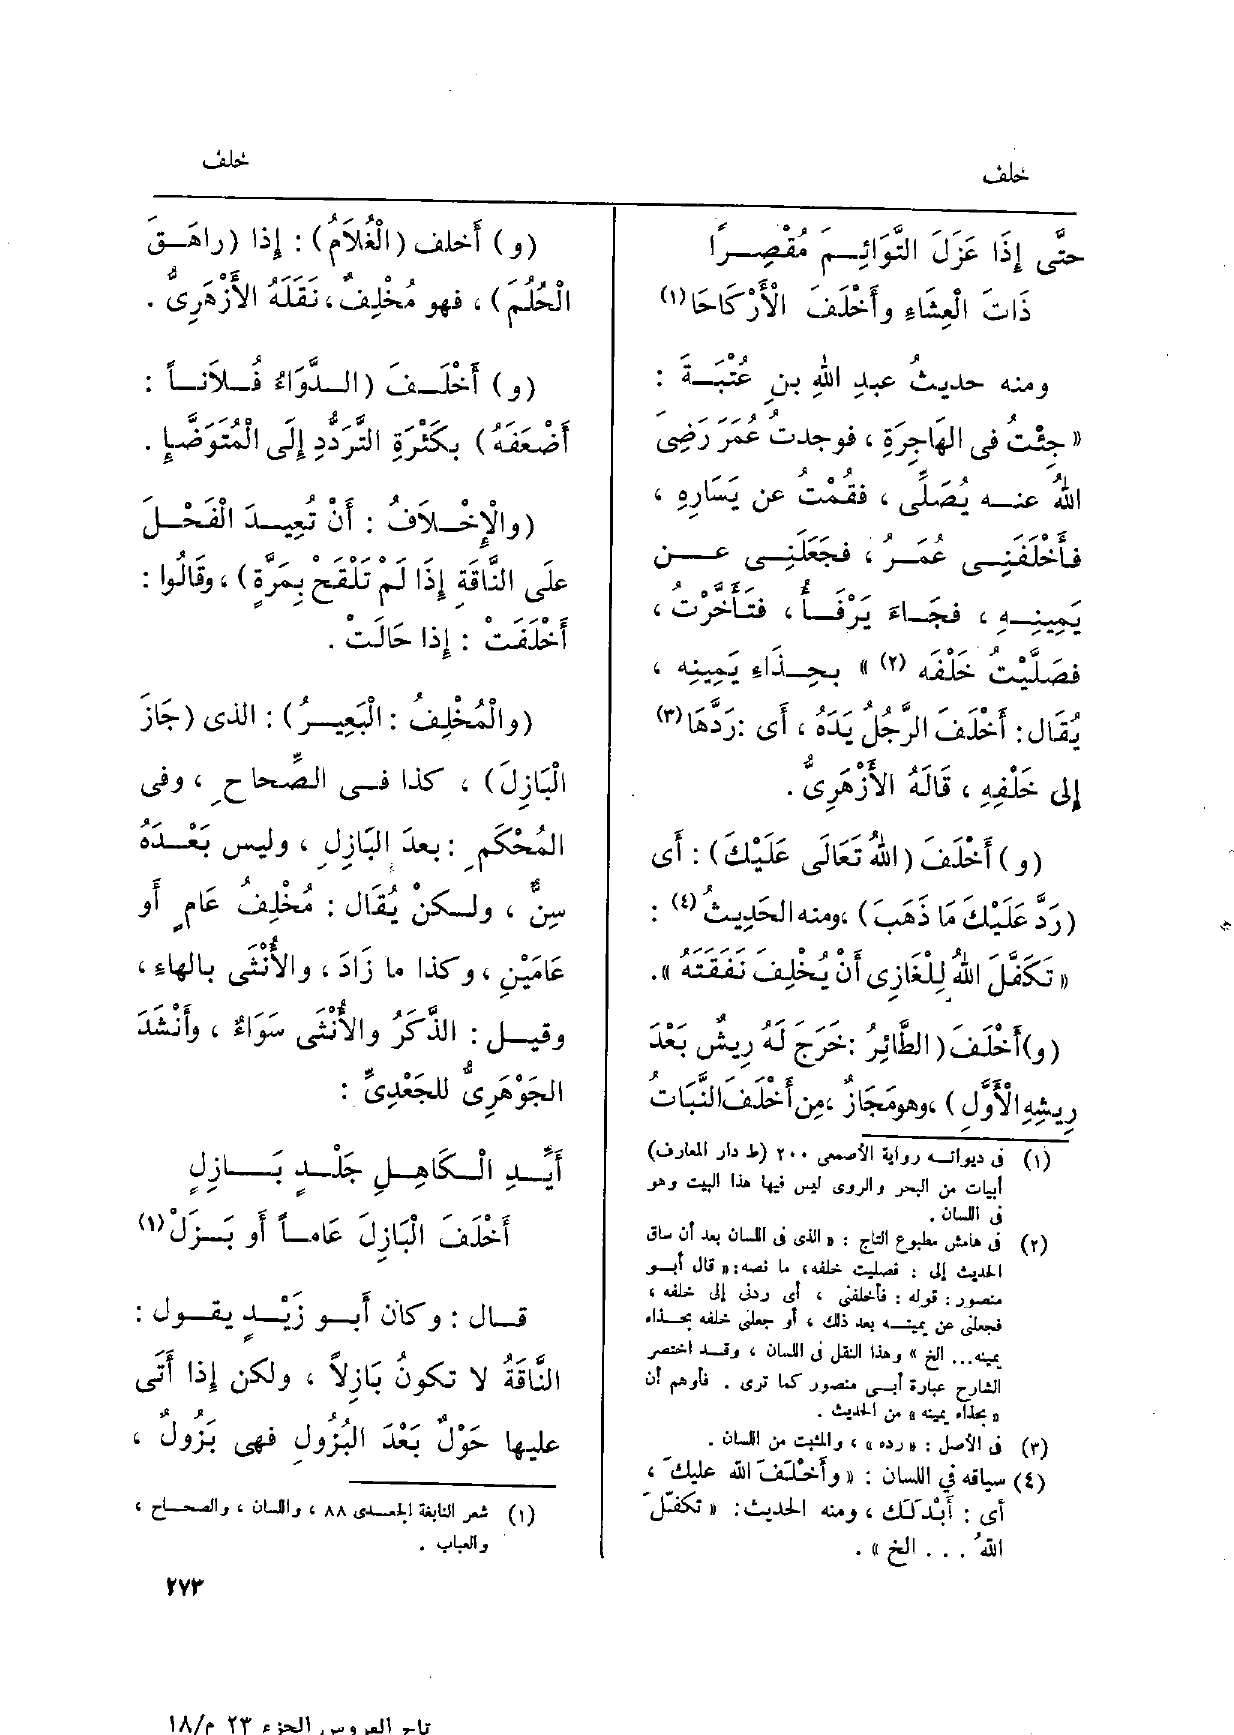 خلف
حتَّى إِذَا عَزَلَ التَّوَائِمَ مُقْصِراً
ذَاتَ الْعِشَاءِ وأَخْلَفَ الْأَرْكَاحَا (١)
ومنه حديثُ عبدِ اللهِ بنِ عُتْبَةَ :
« جِئْتُ فى الهَاجِرَةِ ، فوجدتُ عُمَرَ رَضِىَ
اللهُ عنه يُصَلِّى ، فقُمْتُ عن يَسَارِهِ ،
فأَخْلَفَنِى عُمَرُ ، فجَعَلَنِى عن
يَمِينِهِ ، فجَاءَ يَرْفَأُ ، فتَأَخَّرْتُ ،
فصَلَّيْتُ خَلْفَه (٢) » بحِذَاءِ يَمِينِه ،
يُقَال : أَخْلَفَ الرَّجُلُ يَدَهُ ، أَى : رَدَّهَا (٣)
إِلى خَلْفِهِ ، قَالَهُ الأَزْهَرِىُّ .
(و) أَخْلَفَ (اللهُ تَعَالَى عَلَيْكَ) : أَى
(رَدَّ عَلَيْكَ مَا ذَهَبَ) ، ومنه الحَدِيثُ (٤) :
« تَكَفَّلَ اللهُ لِلْغَازِى أَنْ يُخْلِفَ نَفَقَتَهُ » .
(و) أَخْلَفَ (الطَّائِرُ : خَرَجَ لَهُ رِيشٌ بَعْدَ
رِيشِهِ الْأَوَّلِ) ، وهو مَجَازٌ ، مِن أَخْلَفَ النَّبَاتُ
(١) فى ديوانه رواية الأصمعى ٢٠٠ (ط دار المعارف)
أبيات من البحر والروى ليس فيها هذا البيت وهو
فى اللسان .
(٢) فى هامش مطبوع التاج : « الذى فى اللسان بعد أن ساق
الحديث إلى : فصليت خلفه ، ما نصه : « قال أبو
منصور : قوله : فأخلفنى ، أى ردنى إلى خلفه ،
فجعلنى عن يمينه بعد ذلك ، أو جعلنى خلفه بحذاء
يمينه... الخ » وهذا النقل فى اللسان ، وقد اختصر
الشارح عبارة أبى منصور كما ترى . فأوهم أن
« بحذاء يمينه » من الحديث .
(٣) فى الأصل : « رده » ، والمثبت من اللسان .
(٤) سياقه في اللسان : « وأَخْلَفَ الله عليكَ ،
أى : أَبْدلَك ، ومنه الحديث : « تكفّلَ
اللهُ . . . الخ » .
خلف
(و) أَخلف (الْغُلاَمُ) : إِذا (راهَقَ
الْحُلُمَ) ، فهو مُخْلِفٌ ، نَقَلَهُ الأَزْهَرِىُّ .
(و) أَخْلَفَ (الدَّوَاءُ فُلاَناً :
أَضْعَفَهُ) بكَثْرَةِ التَّرَدُّدِ إِلَى الْمُتَوَضَّإِ .
(والْإِخْلاَفُ : أَنْ تُعِيدَ الْفَحْلَ
علَى النَّاقَةِ إِذَا لَمْ تَلْقَحْ بِمَرَّةٍ) ، وقَالُوا :
أَخْلَفَتْ : إِذا حَالَتْ .
(والْمُخْلِفُ : الْبَعِيرُ) : الذى (جَازَ
الْبَازِلَ) ، كذا فى الصِّحاحِ ، وفى
المُحْكَمِ : بعدَ البَازِلِ ، وليس بَعْدَهُ
سِنٌّ ، ولكنْ يُقَال : مُخْلِفُ عَامٍ أَو
عَامَيْنِ ، وكذا ما زَادَ ، والأُنْثَى بالهاءِ ،
وقيل : الذَّكَرُ والأُنْثَى سَوَاءٌ ، وأَنْشَدَ
الجَوْهَرِىُّ للجَعْدِىِّ :
أَيِّدِ الْكَاهِلِ جَلْدٍ بَازِلٍ
أَخْلَفَ الْبَازِلَ عَاماً أَو بَزَلْ (١)
قال : وكان أَبو زَيْدٍ يقول :
النَّاقَةُ لا تكونُ بَازِلاً ، ولكن إِذا أَتَى
عليها حَوْلٌ بَعْدَ البُزُولِ فهى بَزُولٌ ،
(١) شعر النابغة الجعدى ٨٨ ، واللسان ، والصحاح ،
والعباب .
٢٧٣
تاج العروس الجزء ٢٣ م/١٨